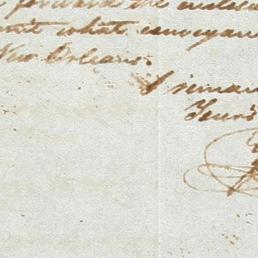 forward the
what conveyan
New Orleans.
I remain
Yours